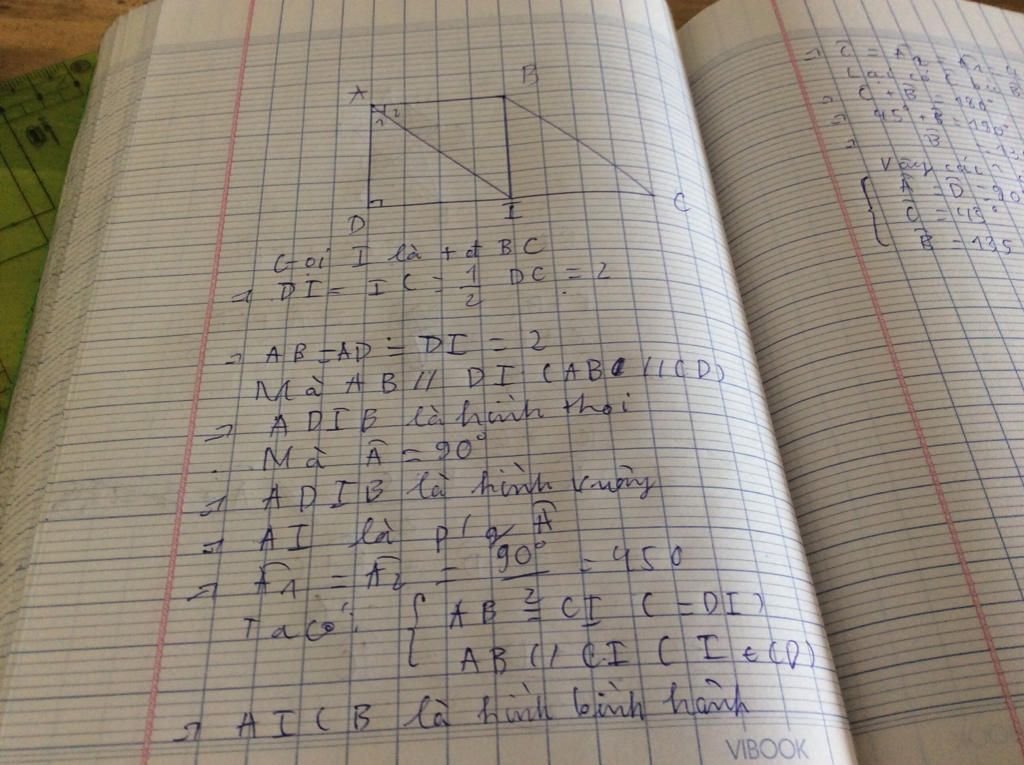 A
B
1
2
D
I
C
Gọi I là t đ BC
⇒ DI = IC = 1/2 DC = 2
⇒ AB = AD = DI = 2
Mà AB // DI (AB // CD)
⇒ ADIB là hình thoi
Mà Â = 90°
⇒ ADIB là hình vuông
⇒ AI là p/g Â
⇒ Â1 = Â2 = 90°/2 = 450
Ta có: { AB = CI (= DI)
AB // CI (I ∈ CD)
⇒ AICB là hình bình hành
VIBOOK
⇒ Ĉ = Â2 = Â1 =
⇒ C + B = 180°
⇒ 45° + B = 180°
⇒ B = 13
Vậy các
{ Â = D = 90°
Ĉ = 45°
B̂ = 135